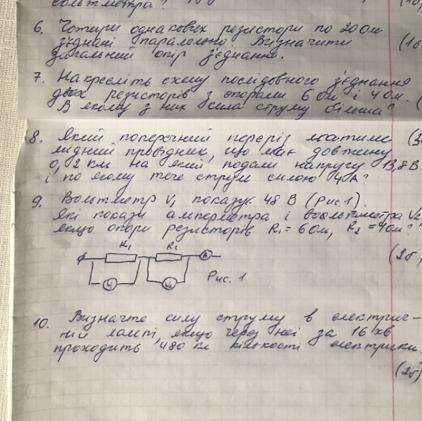 6. Чотири однакових резистори по 20 Ом
з'єднані паралельно. Визначити
загальний опір з'єднання.
7. Накресліть схему послідовного з'єднання
двох резисторів з опорами 6 Ом і 4 Ом.
В якому з них сила струму більша?
8. Який поперечний переріз матиме
мідний провідник, що має довжину
0,2 км на який подали напругу 13,8 В
і по якому тече струм силою 4 А?
9. Вольтметр V₁ показує 48 В (Рис 1).
які покази амперметра і вольтметра V₂
якщо опори резисторів R₁=6 Ом, R₂=4 Ом?
(2б)
R₁ R₂ A
V₁ V₂ Рис. 1
10. Визначте силу струму в електрич-
ній лампі, якщо через неї за 16 хв
проходить 480 Кл кількості електрики
(2б)